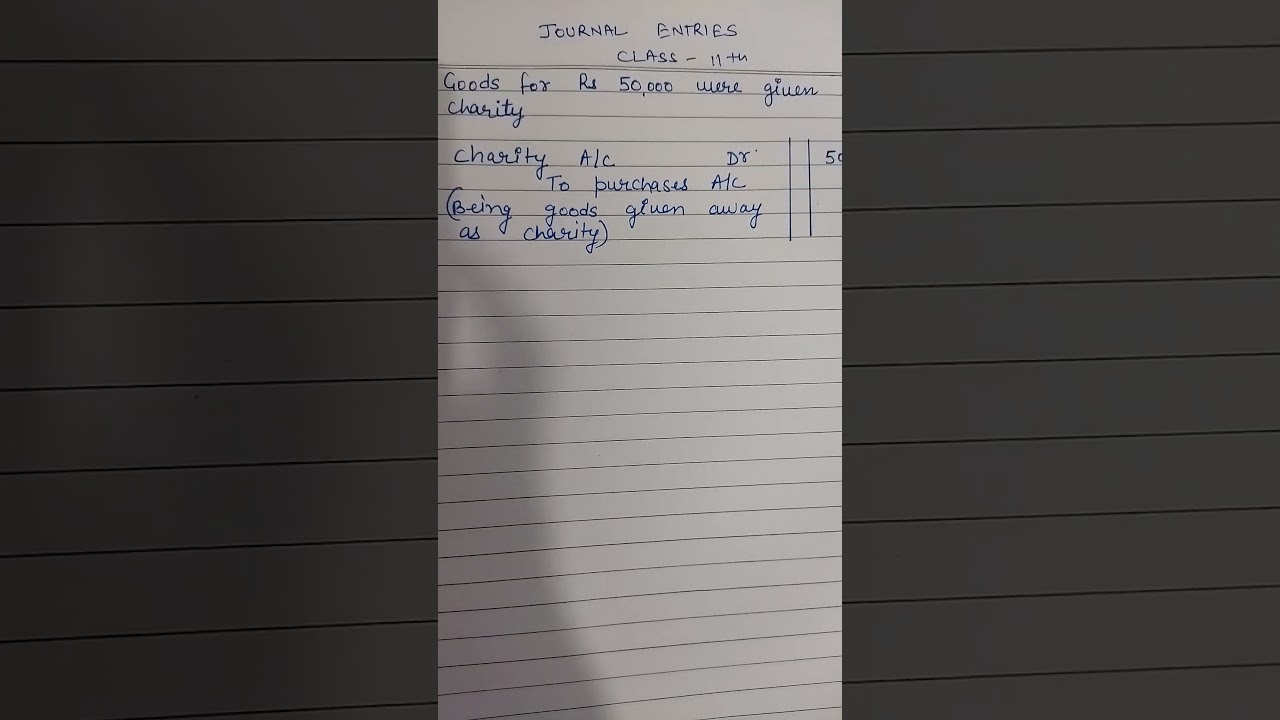 JOURNAL ENTRIES
CLASS - 11th
Goods for Rs 50,000 were given
charity
charity A/C Dr. 50
To purchases A/C
(Being goods given away
as charity)